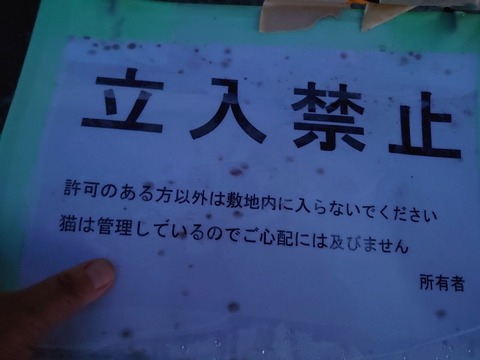 立入禁止
許可のある方以外は敷地内に入らないでください
猫は管理しているのでご心配には及びません
所有者